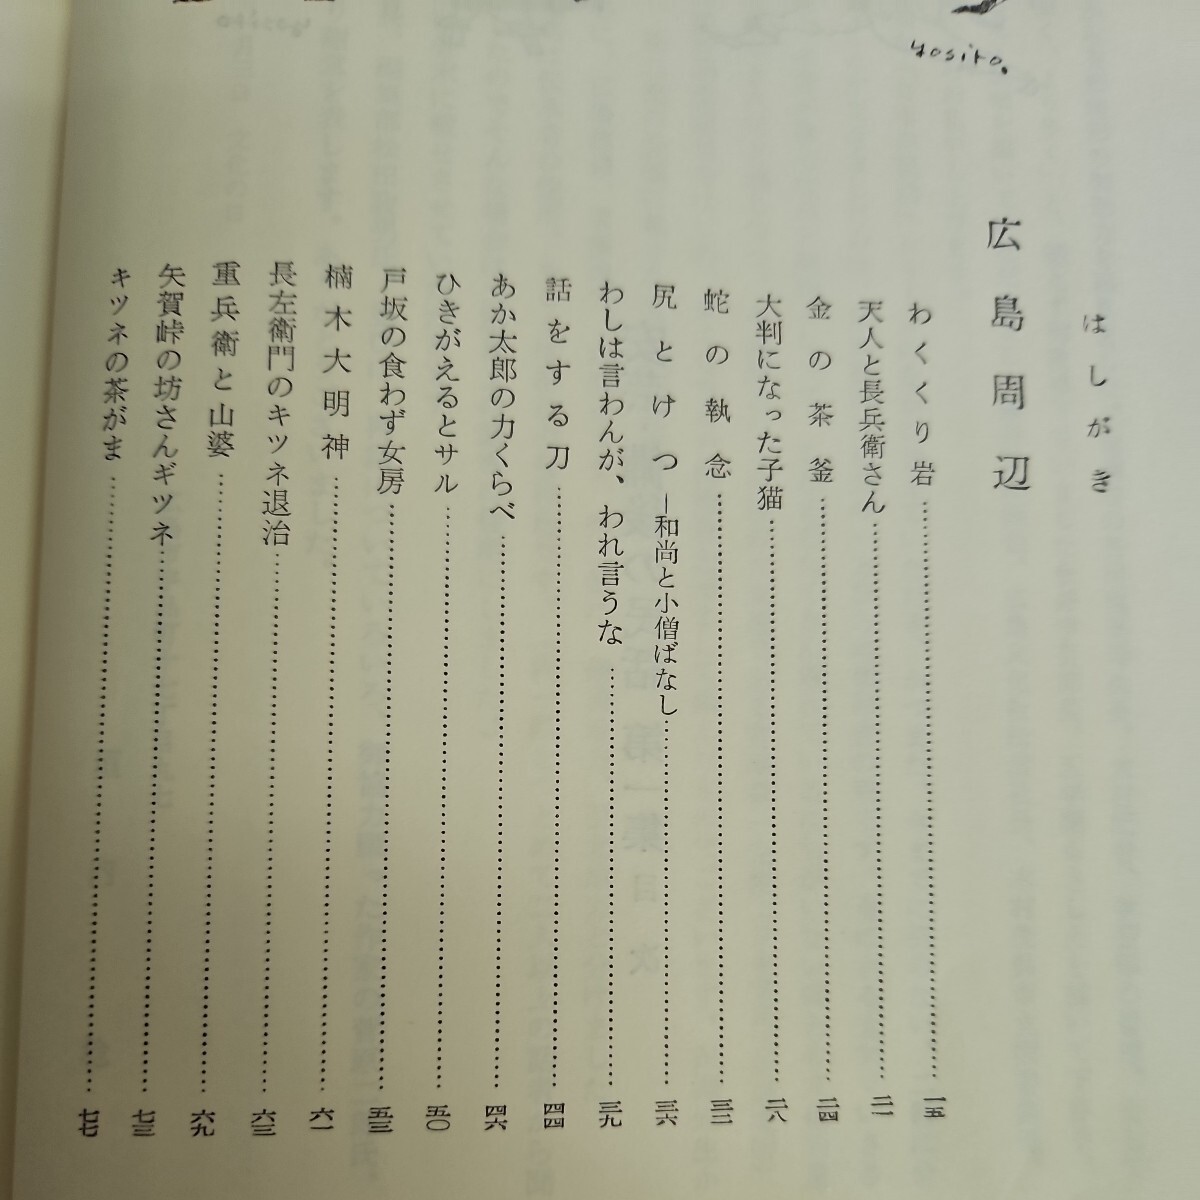 yosiko.
はしがき
広島周辺
わくぐり岩……一五
天人と長兵衛さん……二一
金の茶釜……二四
大判になった子猫……二八
蛇の執念……三二
尻とけつ ―和尚と小僧ばなし……三六
わしは言わんが、われ言うな……三九
話をする刀……四四
あか太郎の力くらべ……四六
ひきがえるとサル……五〇
戸坂の食わず女房……五三
楠木大明神……六一
長左衛門のキツネ退治……六三
重兵衛と山婆……六九
矢賀峠の坊さんギツネ……七三
キツネの茶がま……七七